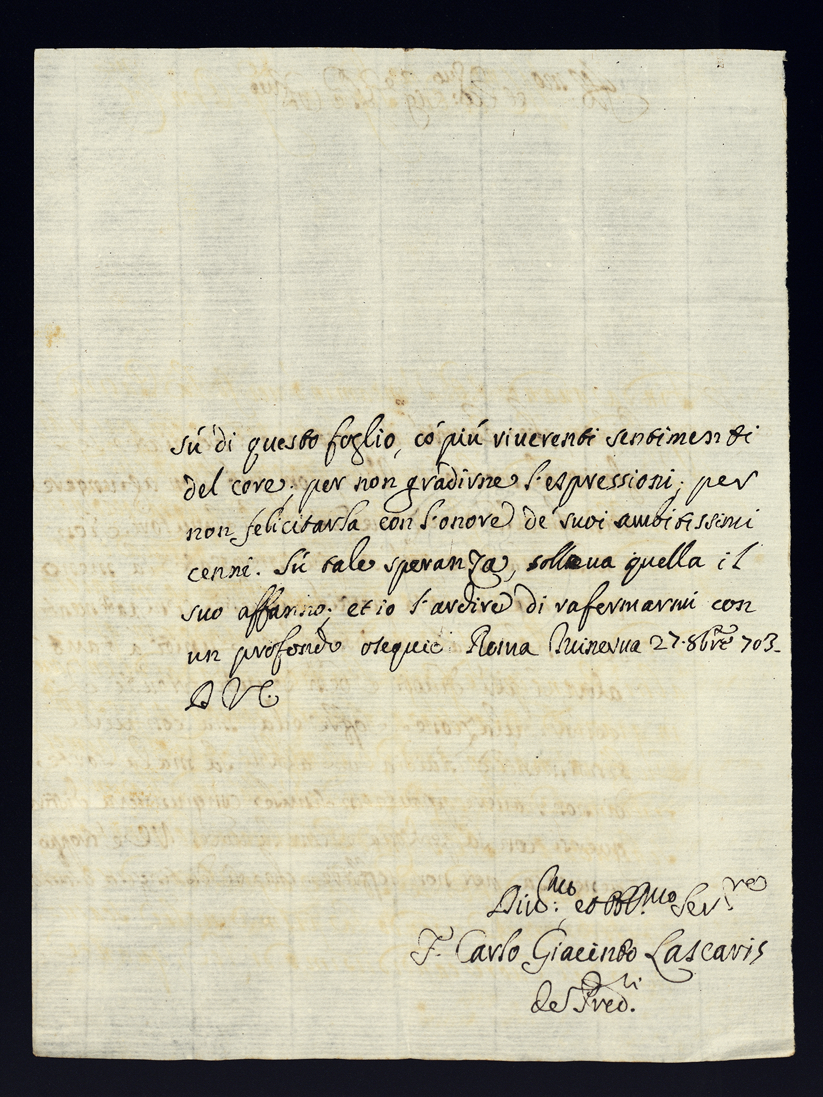 sú di questo foglio, có più riverenti sentimenti
del core; per non gradirne l'espressioni; per
non felicitarla con l'onore de' suoi ambitissimi
cenni. Sú tale speranza, solleua quella il
suo affanno; et io l'ardire di rafermarmi con
un profondo osequio Roma Minerua 27. 8bre 703.
D V E.
Div:mo et Obb:mo Ser:re
F. Carlo Giacinto Lascaris
de Pred:ri